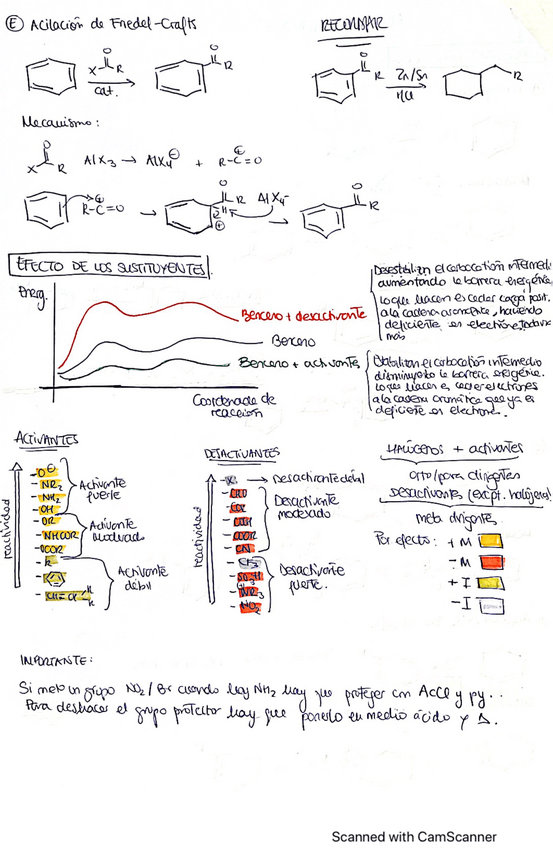 E Acilación de Friedel-Crafts
RECORDAR
X O R
cat.
O R
O R
Zn/Sn
HCl
R
Mecanismo:
X O R AlX3 → AlX4⊖ + R-C⊕=O
R-C⊕=O
O R AlX4-
H
⊕
O R
EFECTO DE LOS SUSTITUYENTES.
Energ.
Benceno + desactivante
Benceno
Benceno + activante
Coordenada de
reacción
Desestabilizan el carbocatión intermedi
aumentando la barrera energética
lo que hacen es ceder carga posit.
a la cadena aromática, haciendo
deficiente en electrones todavía
más
Estabilizan el carbocatión intermedio
disminuyendo la barrera energética.
lo que hacen es ceder electrones
a la cadena aromática que ya es
deficiente en electrones.
ACTIVANTES
reactividad
- O⊖
- NR2
- NH2
- OH
- OR
- NHCOR
- OCOR
- R
- CH=CR-R
R
Activante
fuerte
Activante
moderado
Activante
débil
DESACTIVANTES
reactividad
- X: → Desactivante débil
- CHO
- COR
- COOH
- COOR
- CN
- CF3
- SO3H
- NR3
- NO2
Desactivante
moderado
Desactivante
fuerte.
HALÓGENOS + activantes
orto/para dirigentes
Desactivantes (except. halógenos)
meta dirigentes
Por efecto: + M
- M
+ I
- I
IMPORTANTE:
Si meto un grupo NO2/Br cuando hay NH2 hay que proteger con AcCl y py..
Para deshacer el grupo protector hay que ponerlo en medio ácido y Δ.
Scanned with CamScanner